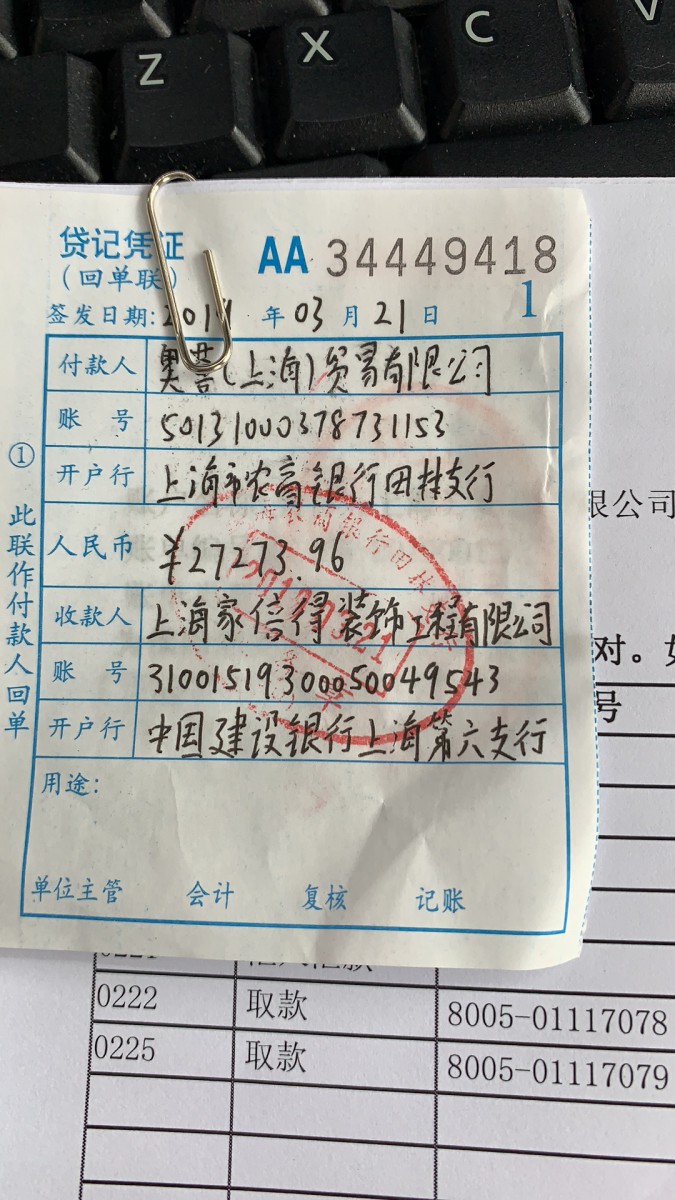 Z X C V
贷记凭证 AA 34449418
(回单联) 1
签发日期: 2019 年 03 月 21 日
付款人 (上海)贸易有限公司
账号 50131000378731153
开户行 上海市农商银行田林支行
人民币 ¥27273.96
收款人 上海家信得装饰工程有限公司
账号 31001519300050049543
开户行 中国建设银行上海第六支行
用途:
单位主管 会计 复核 记账
① 此联作付款人回单
限公司
对。
号
0222 取款 8005-01117078
0225 取款 8005-01117079